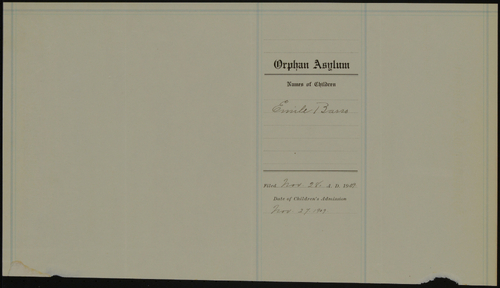 Orphan Asylum
Names of Children
Emile
Filed Nov. 28. A. D. 190
Date of Children's Admission
Nov. 27. 190